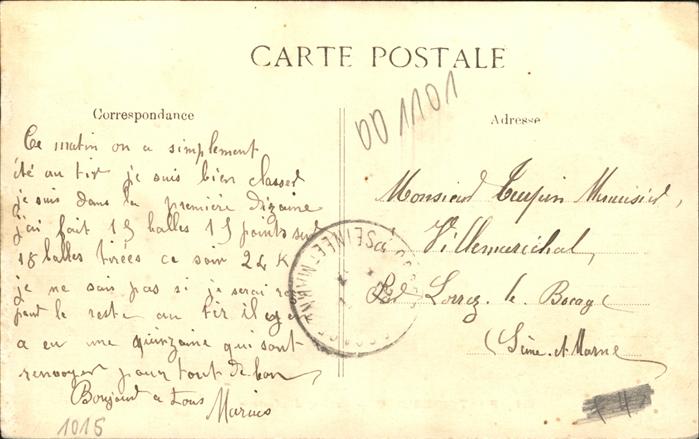 CARTE POSTALE
Correspondance
Ce matin on a simplement
été au tir je suis bien classé
je suis dans la première dizaine
j'ai fait 15 balles 15 points sur
18 balles tirées ce soir 24 K
je ne sais pas si je serai
pour le reste au tir il y en
a eu une quinzaine qui sont
renvoyer pour tout de bon
Bonjour a tous
Marius
1015
001101
Adresse
Monsieur Turpin
à Villemaréchal,
Par Lorrez le Bocage
(Seine et Marne
SEINE ET MARNE